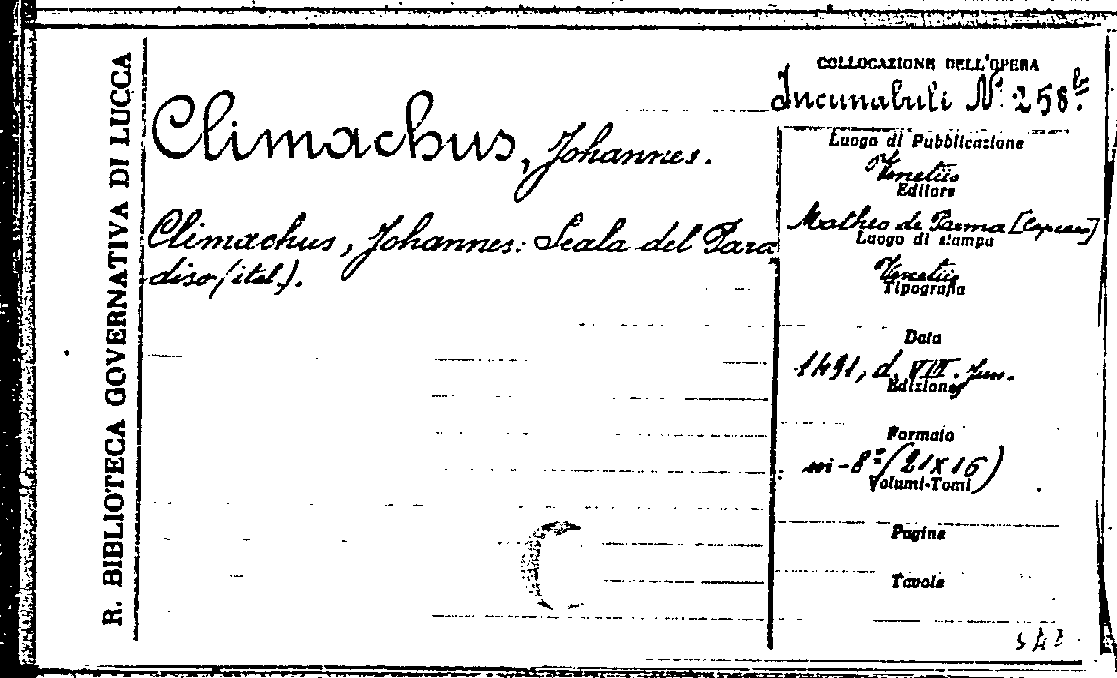 R. BIBLIOTECA GOVERNATIVA DI LUCCA
Climachus, Johannes.
Climachus, Johannes: Scala del Para
diso (ital.).
COLLOCAZIONE DELL'OPERA
Incunabuli N. 258 b.
Luogo di Pubblicazione
Venetiis
Editore
Matheo de Parma [Capcasa]
Luogo di stampa
Venetiis
Tipografia
Data
1491, d. VIII. Jun.
Edizione
Formato
in-8º (21x16)
Volumi-Tomi
Pagine
Tavole